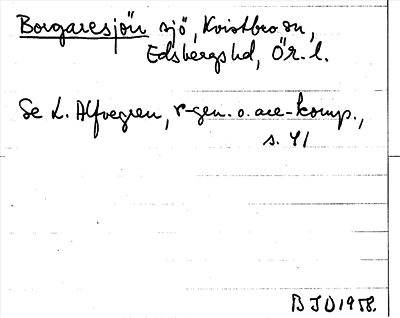 Borgaresjön sjö, Kvistbro sn,
Edsbergs hd, Ör. l.
Se L. Alfvegren, r-gen. o. are-komp.,
s. 41
BJD 1958.